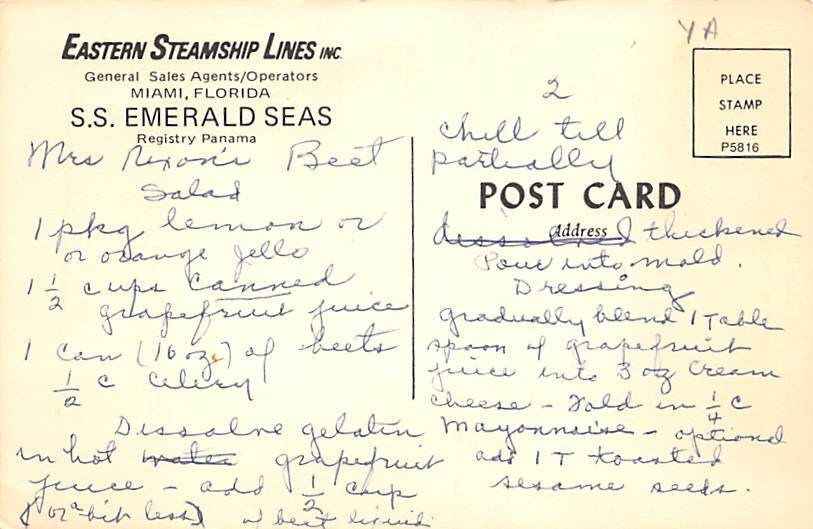 EASTERN STEAMSHIP LINES INC.
General Sales Agents/Operators
MIAMI, FLORIDA
S.S. EMERALD SEAS
Registry Panama
Mrs Nixon's Beet
Salad
1 pkg lemon or
or orange Jello
1 1/2 cups canned
grapefruit juice
1 can (16 oz.) of beets
1/2 c celery
Dissolve gelatin
in hot water grapefruit
juice - add 1/2 cup
(or a bit less) of beet liquid
YA
PLACE
STAMP
HERE
P5816
2
chill till
partially
POST CARD
Address
dissolved thickened
Pour into mold.
Dressing
Gradually blend 1 Table
spoon of grapefruit
juice into 3 oz cream
cheese - Fold in 1/4 c
Mayonnaise - optional
add 1 T toasted
sesame seeds.